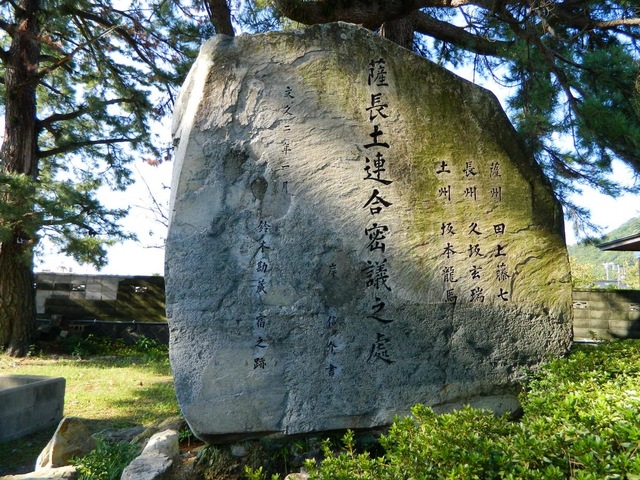 薩州 田上藤七
長州 久坂玄瑞
土州 坂本龍馬
薩長土連合密議之處
信介書
文久二年一月
鈴木勘蔵 宿之跡